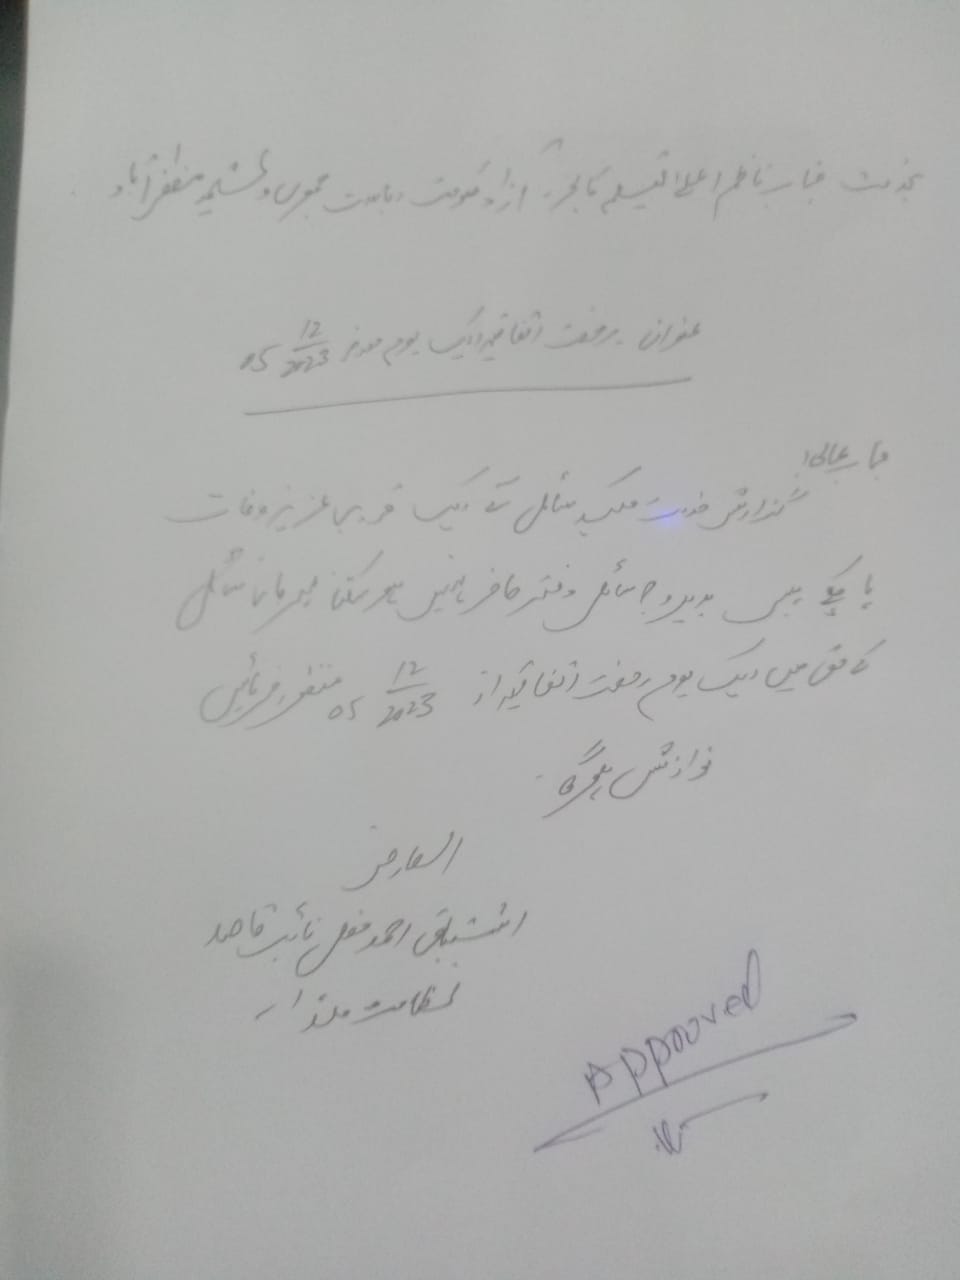 بخدمت جناب ناظم اعلیٰ تعلیم کالجز آزاد حکومت ریاست جموں و کشمیر مظفرآباد
عنوان رخصت اتفاقیہ ایک یوم مورخہ 05 12/2023
جناب عالی!
گذارش خدمت ھیکہ سائل کے ایک قریبی عزیز وفات
پا چکے ہیں بدیں وجہ سائل دفتر حاضر نہیں ہو سکتا سائل
کے حق میں ایک یوم رخصت اتفاقیہ از 05 12/2023 منظور فرمائیں
نوازش ہوگی
العارض
اشتیاق احمد مغل نائب قاصد
نظامت ھذا
Approved